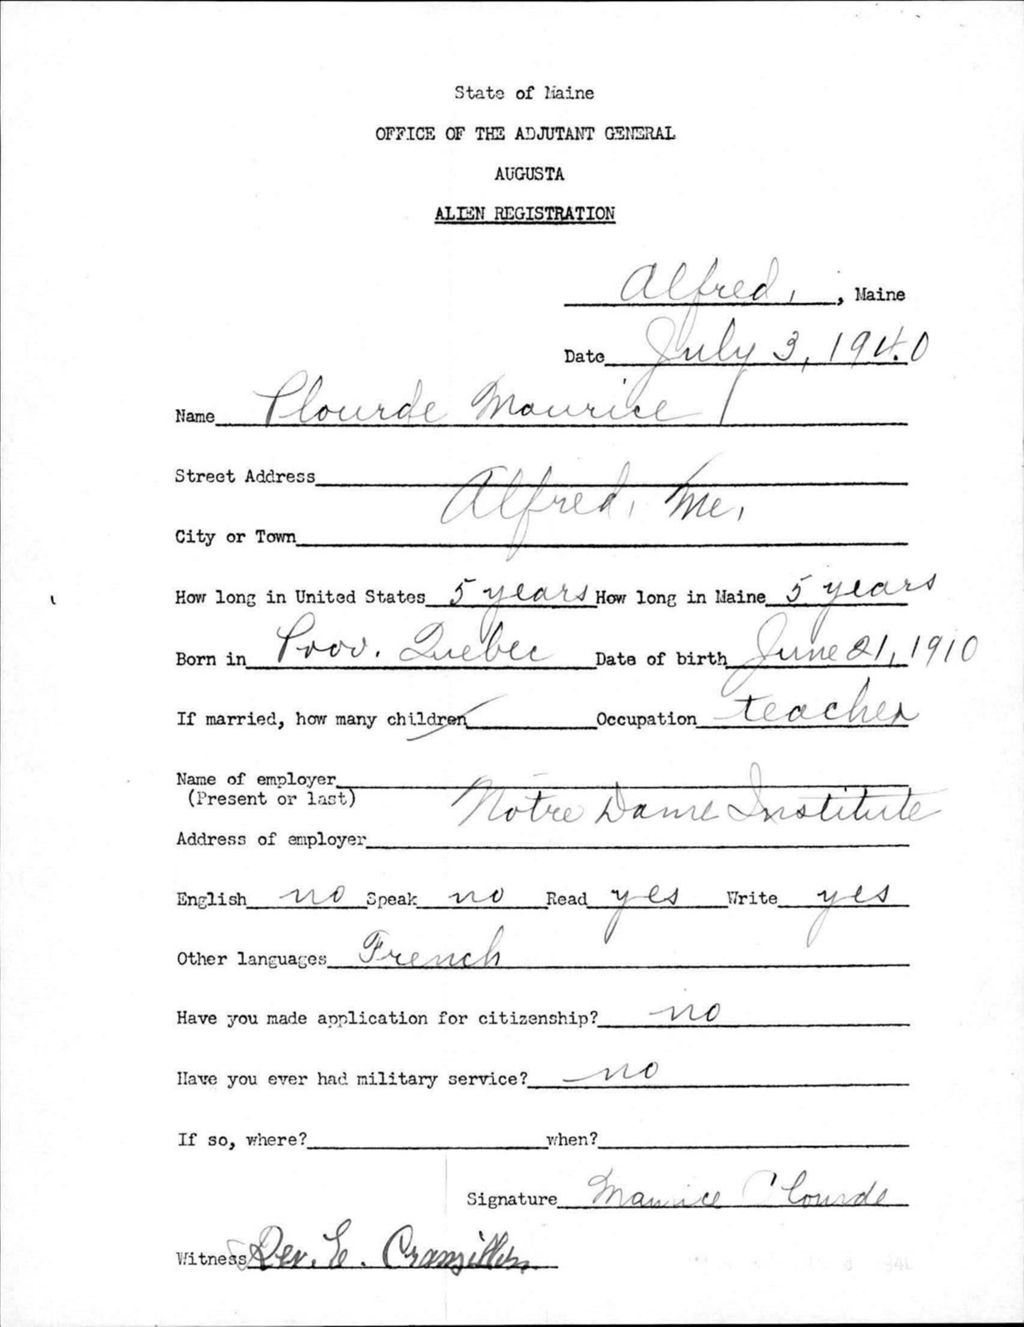 State of Maine
OFFICE OF THE ADJUTANT GENERAL
AUGUSTA
ALIEN REGISTRATION
Alfred, , Maine
Date July 3, 1940
Name Plourde Maurice
Street Address
Alfred, Me.
City or Town
How long in United States 5 years How long in Maine 5 years
Born in Prov. Quebec Date of birth June 21, 1910
If married, how many children Occupation teacher
Name of employer
(Present or last)
Notre Dame Institute
Address of employer
English no Speak no Read yes Write yes
Other languages French
Have you made application for citizenship? no
Have you ever had military service? no
If so, where? when?
Signature Maurice Plourde
Witness Rev. E.